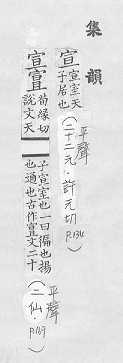 集韻
宣 宣室天
子居也
平聲
（二十二元．許元切
P.134）
宣 荀緣切
說文天
子宣室也一曰徧也揚
也通也古作宣文二十
平聲
（二仙．
P.169）